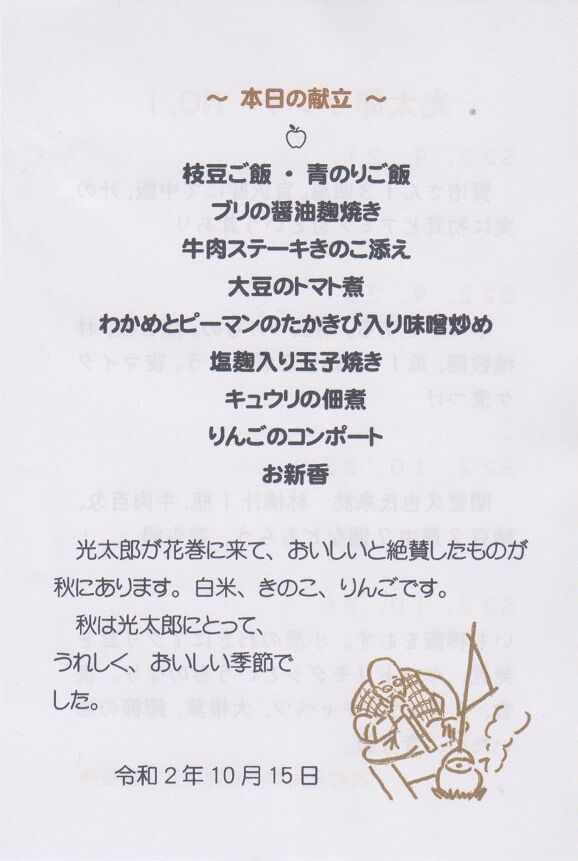 ～ 本日の献立 ～
枝豆ご飯 ・ 青のりご飯
ブリの醤油麹焼き
牛肉ステーキきのこ添え
大豆のトマト煮
わかめとピーマンのたかきび入り味噌炒め
塩麹入り玉子焼き
キュウリの佃煮
りんごのコンポート
お新香
光太郎が花巻に来て、おいしいと絶賛したものが
秋にあります。白米、きのこ、りんごです。
秋は光太郎にとって、
うれしく、おいしい季節で
した。
令和２年１０月１５日